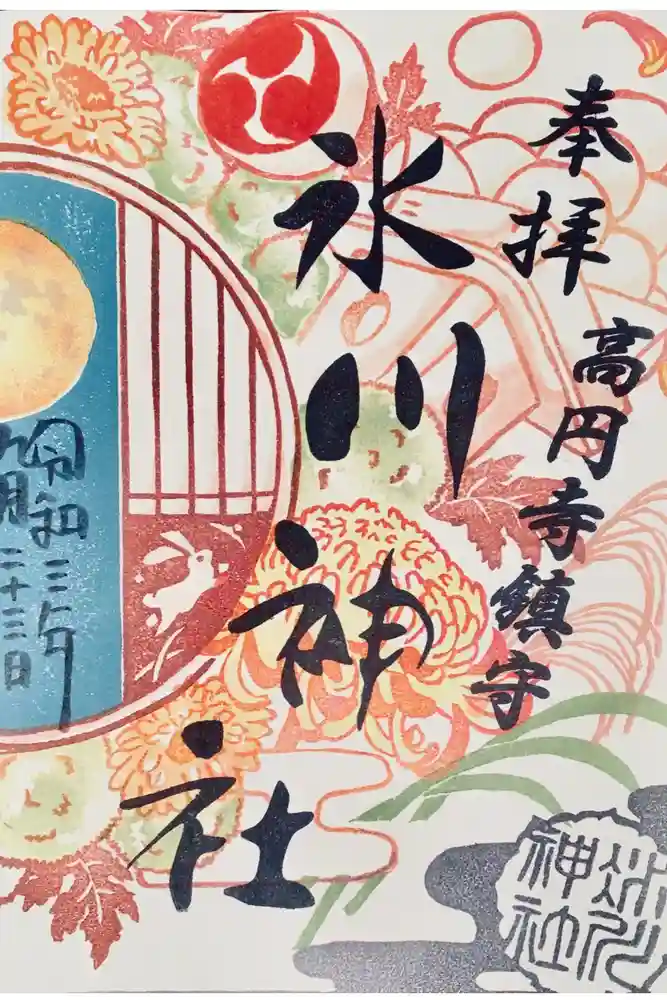 奉拝
高円寺鎮守
氷川神社
令和三年
九月二十三日
氷川
神社